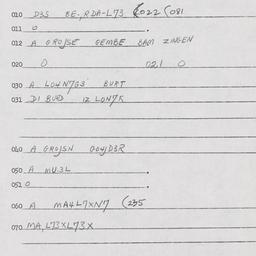 010 D3S BE-,RDA-L73 (022 (081
011 0
012 A GROJSE GEMBE BAM ZINGEN
020 0 021 0
030 A LO4N7G3 BURT
031 DI BURD IZ LON7K
040 A GROJSN
050 A MU3L
052 0
060 A MA4L7XN7 (235
070 MA,L73XL73X